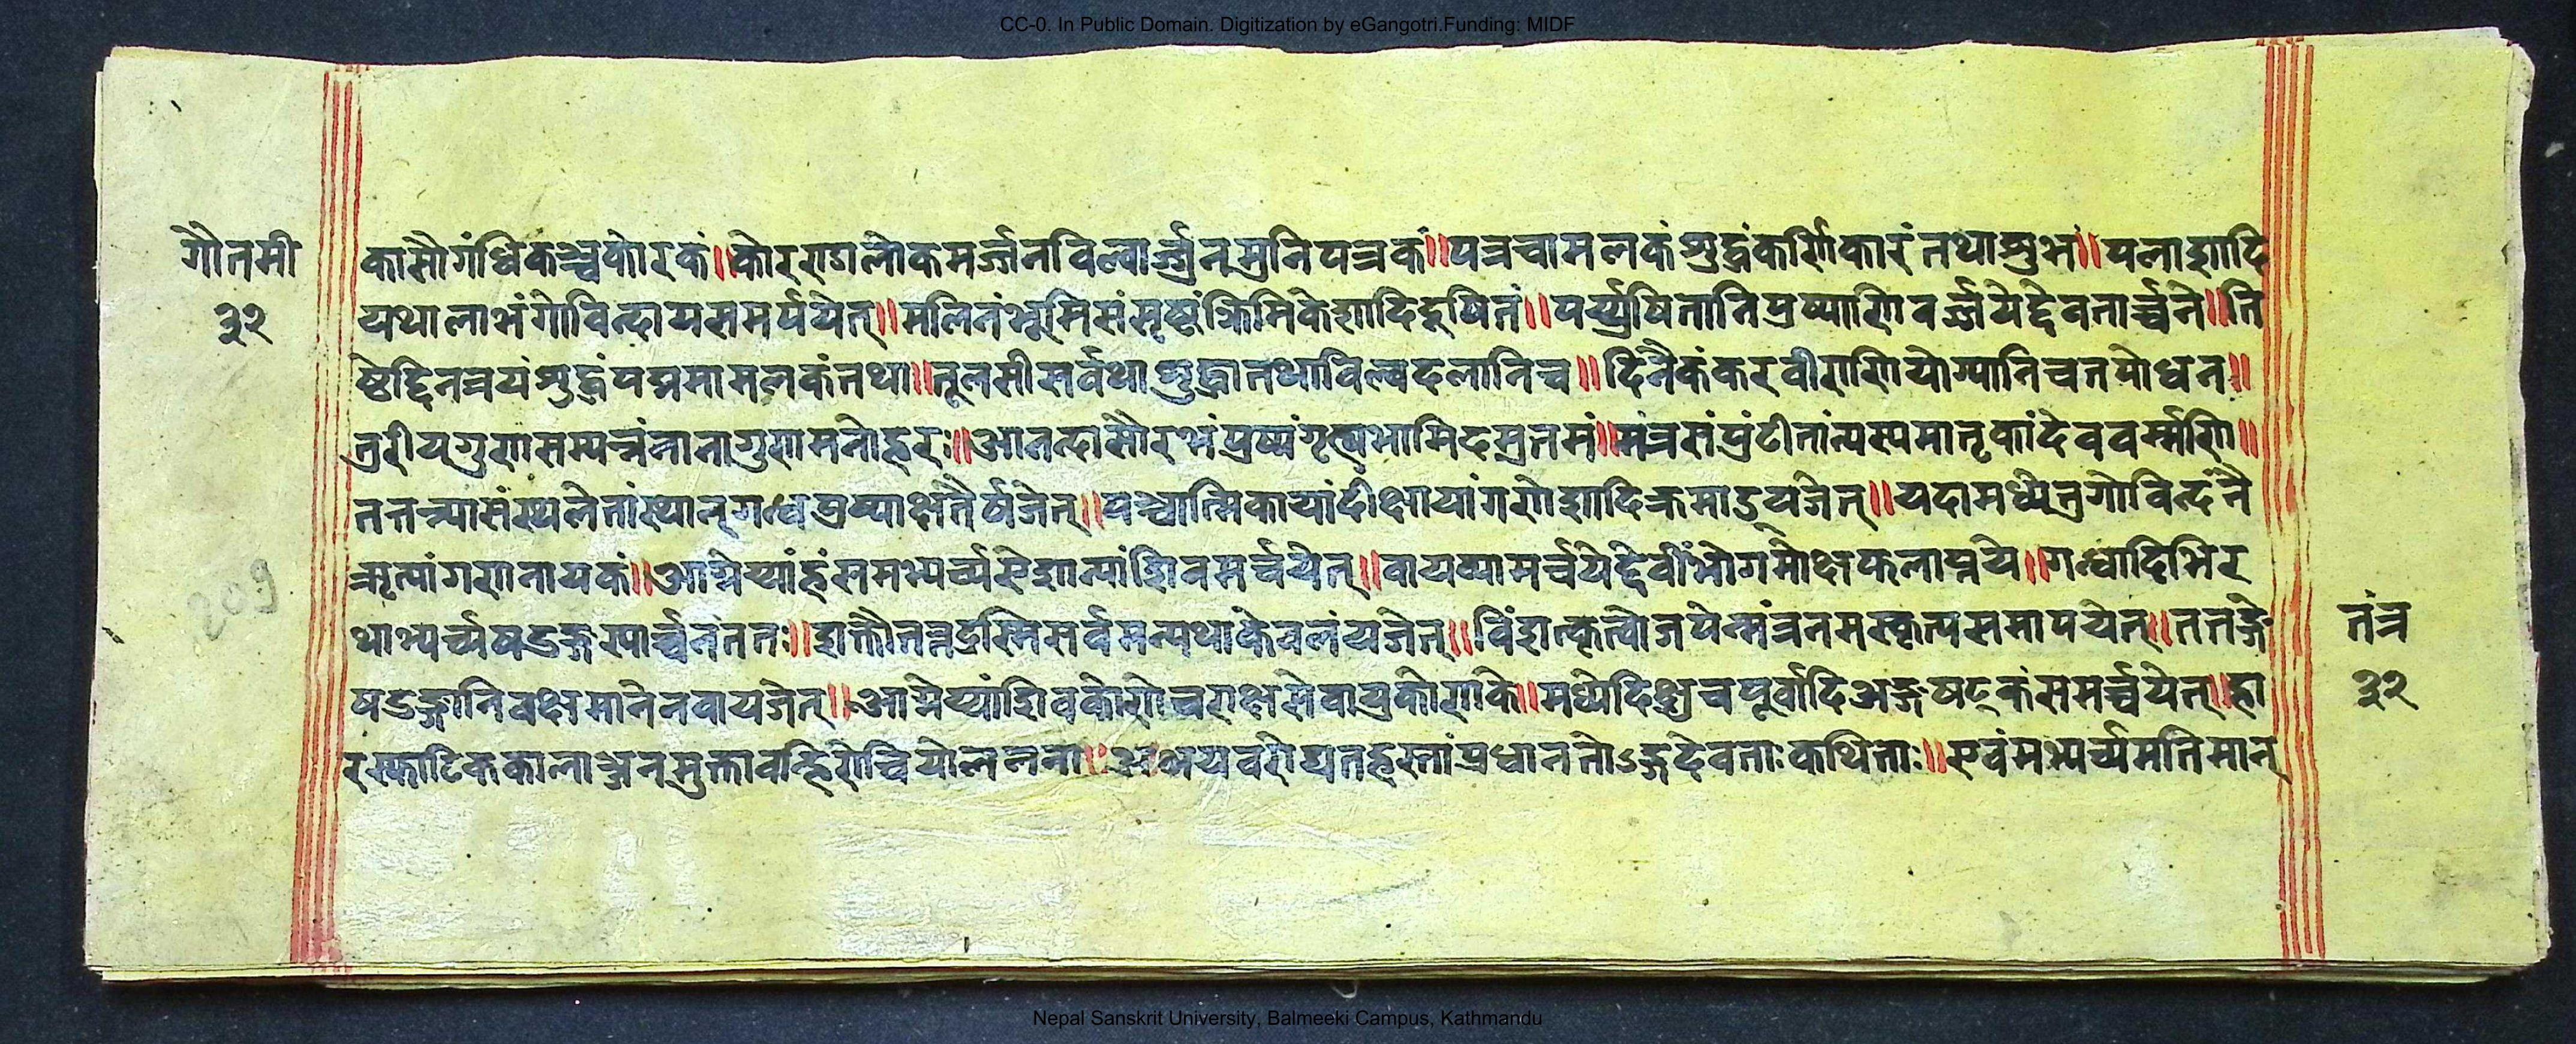 CC-0. In Public Domain. Digitization by eGangotri.Funding: MIDF
गौतमी
३२
कासौगंधिकञ्चकोरकं॥कोरराडालोकमर्ज्जनविल्वार्ज्जुनमुनिपत्रकं॥पत्रचामलकंशुद्धंकर्णिकारंतथाशुभं॥पलाशादि
यथालाभंगोविन्दायसमर्पयेत्॥मलिनंभूमिसंसृष्टंक्रिमिकेशादिदूषितं॥पर्य्युषितानिपुष्पाणिवर्ज्जयेद्देवतार्च्चने॥ति
ष्ठेद्दिनत्रयंशुद्धंपद्ममामलकंतथा॥तूलसीसर्वथाशुद्धातथाविल्वदलानिच॥दिनैकंकरवीराणियोग्यानिचतपोधन॥
तुरीयगुणसम्पन्नंनानागुणमनोहरः॥आनन्दासौरभंपुष्पंगृह्यभामिदमुतमं॥मंत्रसंपुंटीतांत्यस्यमातृकांदेववर्म्मणि॥
तत्तन्न्यासंस्थलेतांस्थान्गन्धपुष्पाक्षतैर्षजेत्॥पञ्चात्मिकायांदीक्षायांगणेशादिक्रमाडयजेत्॥यदामध्येतुगोविन्दंनै
ऋत्यांगणनायकं॥आग्नेय्यांहंसमभ्यर्च्यसेशान्यांशिवमर्चयेत्॥वायव्यामर्चयेद्देवींभोगमोक्षफलाप्तये॥गन्धादिभिर
थाभ्यर्च्यषडङ्गस्यार्च्चनंततः॥शक्तौतन्त्रद्रस्मिसर्वमन्यथाकेवलंयजेत्॥विंशत्कृत्वोजपेन्मंत्रनमस्कृत्यसमापयेत्॥ततङ्गे
षडङ्गानिवक्षमानेनवायजेत्॥आग्नेय्यांशिवकोणेचराक्षसेवायुकोणके॥मध्येदिक्षुचपूर्वादिअङ्गषट्कंसमर्च्चयेत्॥हा
रस्फाटिककालाञ्जनमुक्तावह्निरोचियोललना॥अभयवरोद्यतहस्तांप्रधानतोऽङ्गदेवताःकथिताः॥एवंमभ्यर्च्यमतिमान्
तंत्र
३२
209
Nepal Sanskrit University, Balmeeki Campus, Kathmandu